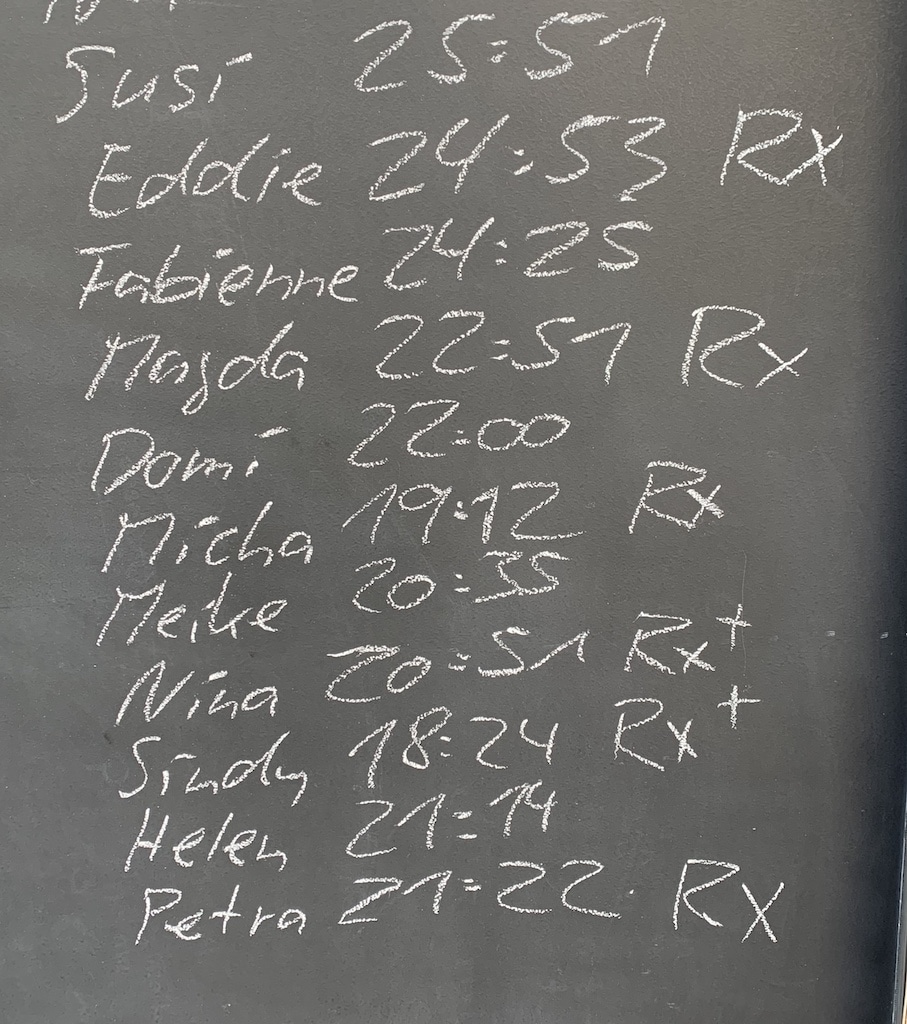 Susi 25:51
Eddie 24:53 Rx
Fabienne 24:25
Magda 22:51 Rx
Domi 22:00
Micha 19:12 Rx
Meike 20:35
Nina 20:51 Rx+
Sindy 18:24 Rx+
Helen 21:14
Petra 21:22 Rx